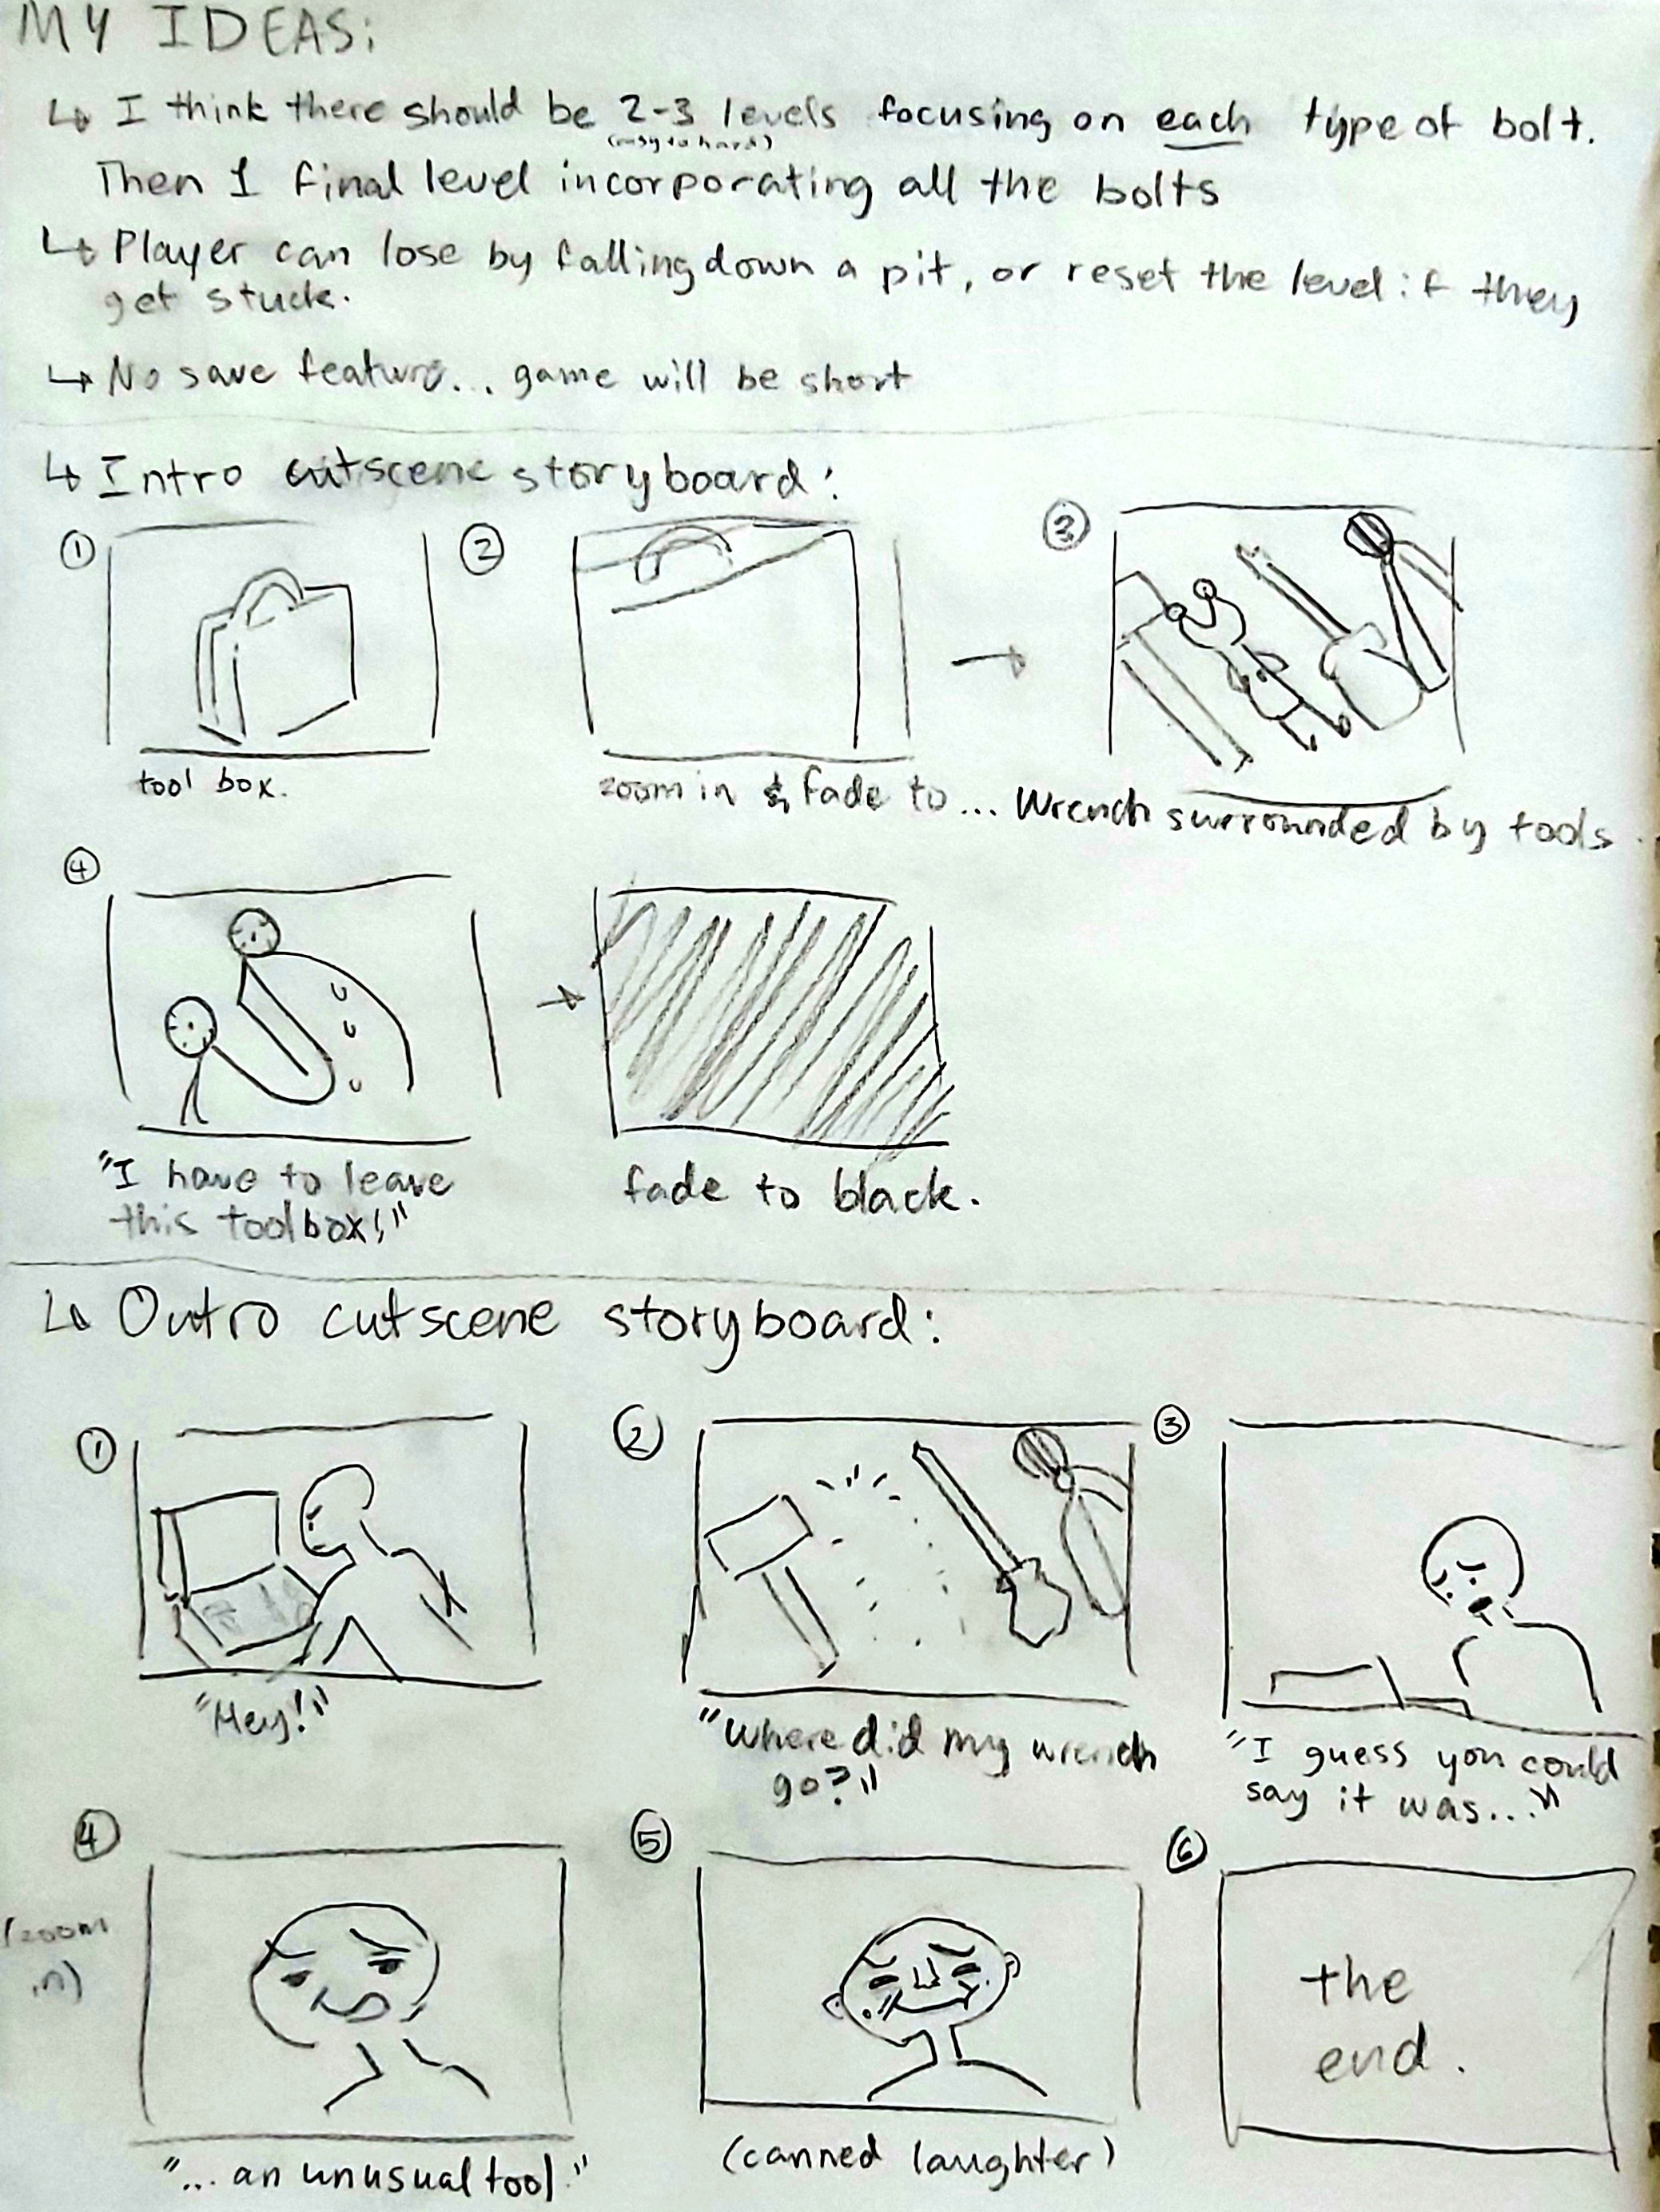 MY IDEAS:
↳ I think there should be 2-3 levels focusing on each type of bolt.
(easy to hard)
Then 1 final level incorporating all the bolts
↳ Player can lose by falling down a pit, or reset the level if they
get stuck.
↳ No save feature... game will be short
↳ Intro cutscene storyboard:
① ② ③
tool box.
zoom in & fade to... Wrench surrounded by tools.
④
"I have to leave
this toolbox!"
fade to black.
↳ Outro cutscene storyboard:
① ② ③
"Hey!"
"Where did my wrench
go?"
"I guess you could
say it was..."
④ ⑤ ⑥
(zoom
in)
the
end.
"... an unusual tool."
(canned laughter)